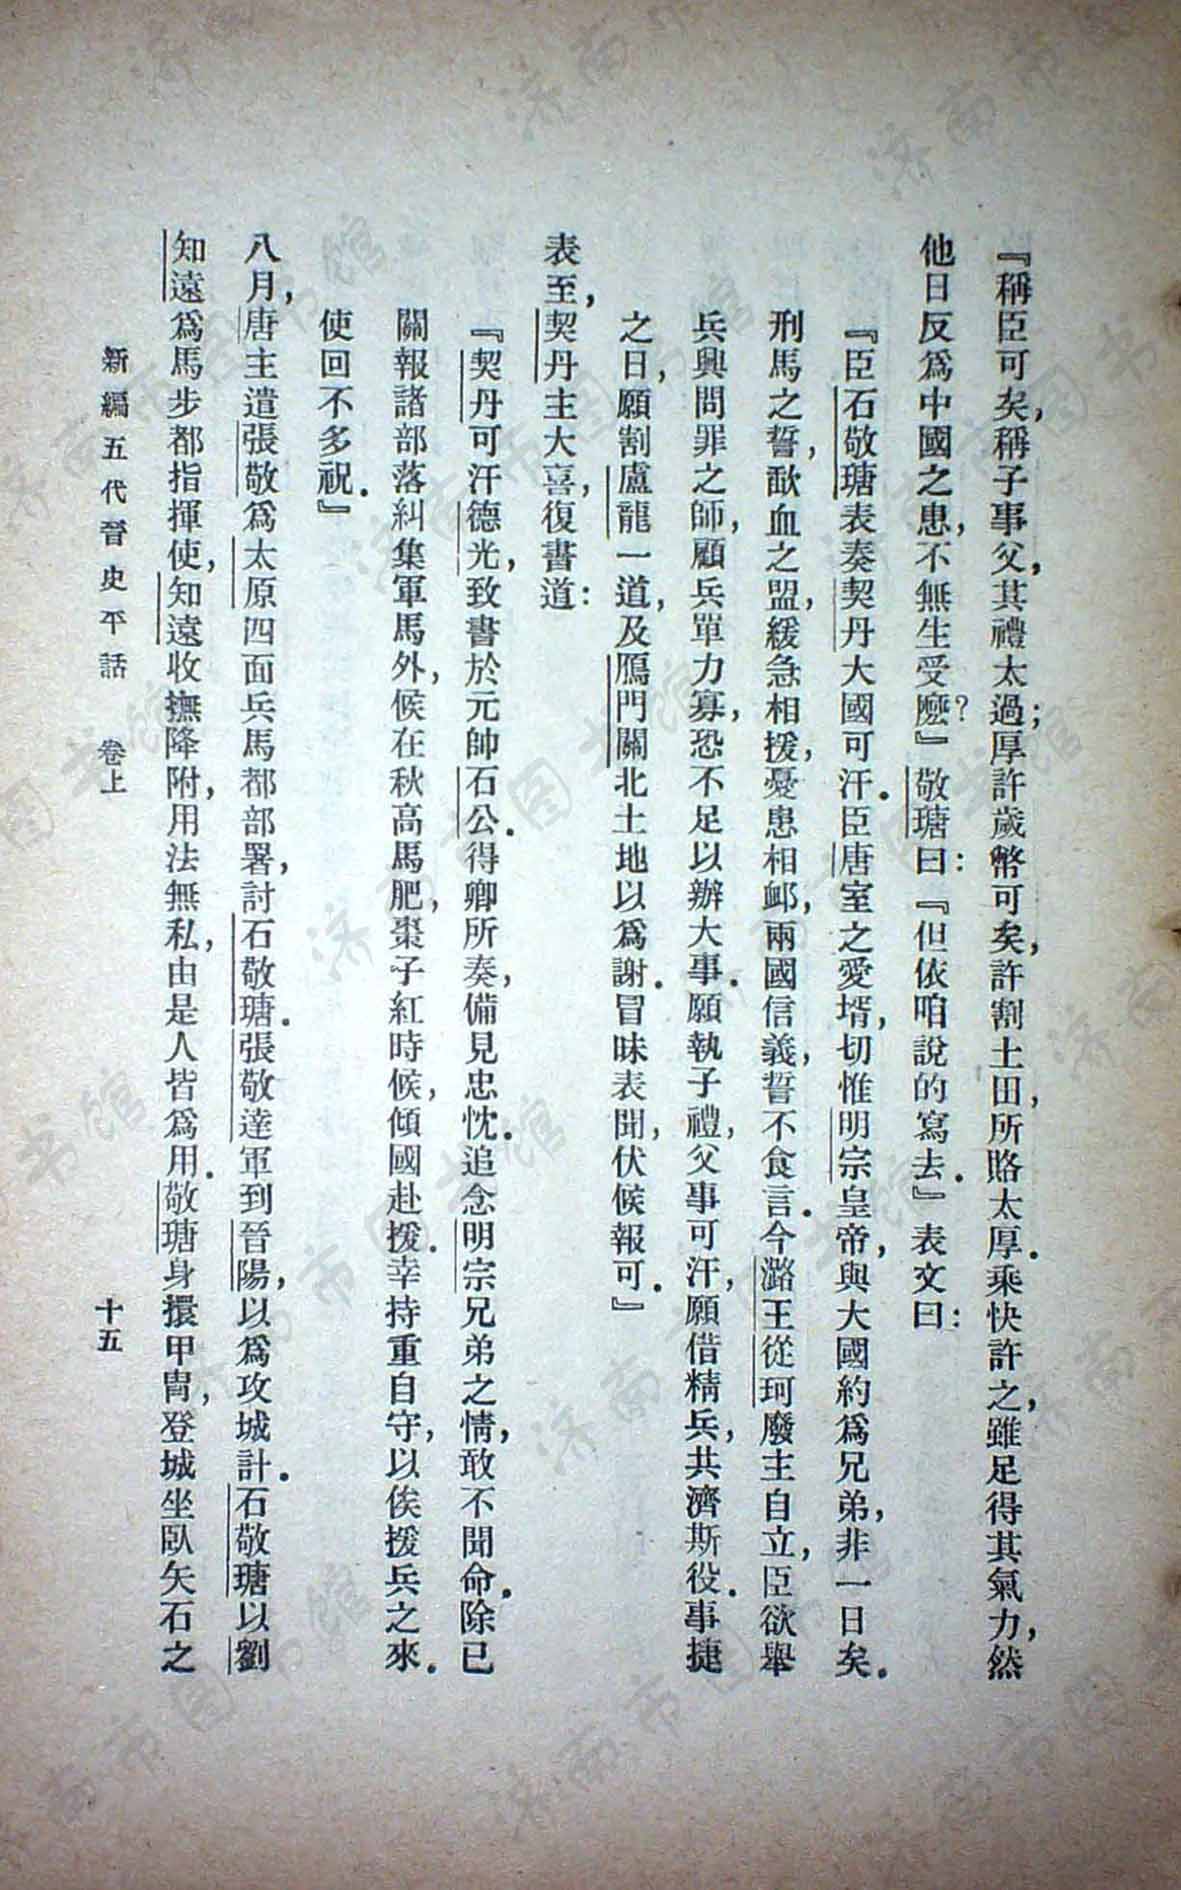 『稱臣可矣，稱子事父，其禮太過；厚許歲幣可矣，許割土田，所賂太厚．乘快許之，雖足得其氣力，然
他日反爲中國之患，不無生受麽？』敬瑭曰：『但依咱說的寫去．』表文曰：
『臣石敬瑭表奏契丹大國可汗．臣唐室之愛壻，切惟明宗皇帝，與大國約爲兄弟，非一日矣．
刑馬之誓，歃血之盟，緩急相援，憂患相卹，兩國信義，誓不食言．今潞王從珂廢主自立，臣欲舉
兵興問罪之師，顧兵單力寡，恐不足以辦大事．願執子禮，父事可汗，願借精兵，共濟斯役．事捷
之日，願割盧龍一道，及鴈門關北土地以爲謝．冒昧表聞，伏候報可．』
表至，契丹主大喜，復書道：
『契丹可汗德光，致書於元帥石公．得卿所奏，備見忠忱．追念明宗兄弟之情，敢不聞命．除已
關報諸部落糾集軍馬外，候在秋高馬肥，棗子紅時候，傾國赴援．幸持重自守，以俟援兵之來．
使回不多祝．』
八月，唐主遣張敬爲太原四面兵馬都部署，討石敬瑭．張敬達軍到晉陽，以爲攻城計．石敬瑭以劉
知遠爲馬步都指揮使，知遠收撫降附，用法無私，由是人皆爲用．敬瑭身擐甲冑，登城坐臥矢石之
新編五代晉史平話　卷上　十五
济南市图书馆